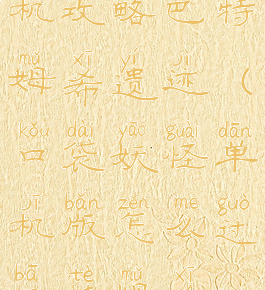 机攻略巴特
mǔ xī yí jì
姆希遗迹（
kǒu dài yāo guài dān
口袋妖怪单
jī bǎn zěn (me guò
机版怎么过
bā tè mǔ xī